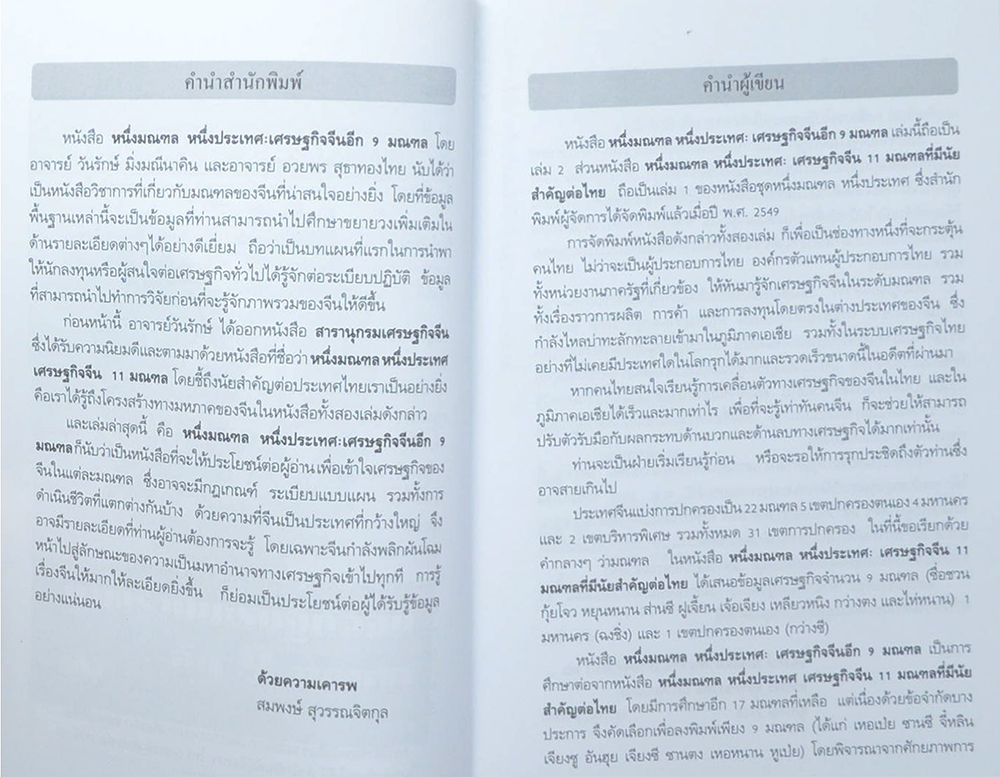 คำนำสำนักพิมพ์
หนังสือ หนึ่งมณฑล หนึ่งประเทศ:เศรษฐกิจจีนอีก 9 มณฑล โดย
อาจารย์ วันรักษ์ มิ่งมณีนาคิน และอาจารย์ อวยพร สุธาทองไทย นับได้ว่า
เป็นหนังสือวิชาการที่เกี่ยวกับมณฑลของจีนที่น่าสนใจอย่างยิ่ง โดยที่ข้อมูล
พื้นฐานเหล่านี้จะเป็นข้อมูลที่ท่านสามารถนำไปศึกษาขยายวงเพิ่มเติมใน
ด้านรายละเอียดต่างๆได้อย่างดีเยี่ยม ถือว่าเป็นบทแผนที่แรกในการนำพา
ให้นักลงทุนหรือผู้สนใจต่อเศรษฐกิจทั่วไปได้รู้จักต่อระเบียบปฏิบัติ ข้อมูล
ที่สามารถนำไปทำการวิจัยก่อนที่จะรู้จักภาพรวมของจีนให้ดีขึ้น
ก่อนหน้านี้ อาจารย์วันรักษ์ ได้ออกหนังสือ สารานุกรมเศรษฐกิจจีน
ซึ่งได้รับความนิยมดีและตามมาด้วยหนังสือที่ชื่อว่า หนึ่งมณฑล หนึ่งประเทศ
เศรษฐกิจจีน 11 มณฑล โดยชี้ถึงนัยสำคัญต่อประเทศไทยเราเป็นอย่างยิ่ง
คือเราได้รู้ถึงโครงสร้างทางมหภาคของจีนในหนังสือทั้งสองเล่มดังกล่าว
และเล่มล่าสุดนี้ คือ หนึ่งมณฑล หนึ่งประเทศ:เศรษฐกิจจีนอีก 9
มณฑลก็นับว่าเป็นหนังสือที่จะให้ประโยชน์ต่อผู้อ่าน เพื่อเข้าใจเศรษฐกิจของ
จีนในแต่ละมณฑล ซึ่งอาจจะมีกฎเกณฑ์ ระเบียบแบบแผน รวมทั้งการ
ดำเนินชีวิตที่แตกต่างกันบ้าง ด้วยความที่จีนเป็นประเทศที่กว้างใหญ่ จึง
อาจมีรายละเอียดที่ท่านผู้อ่านต้องการจะรู้ โดยเฉพาะจีนกำลังพลิกผันโฉม
หน้าไปสู่ลักษณะของความเป็นมหาอำนาจทางเศรษฐกิจเข้าไปทุกที การรู้
เรื่องจีนให้มากให้ละเอียดยิ่งขึ้น ก็ย่อมเป็นประโยชน์ต่อผู้ได้รับรู้ข้อมูล
อย่างแน่นอน
ด้วยความเคารพ
สมพงษ์ สุวรรณจิตกุล
คำนำผู้เขียน
หนังสือ หนึ่งมณฑล หนึ่งประเทศ: เศรษฐกิจจีนอีก 9 มณฑล เล่มนี้ถือเป็น
เล่ม 2 ส่วนหนังสือ หนึ่งมณฑล หนึ่งประเทศ: เศรษฐกิจจีน 11 มณฑลที่มีนัย
สำคัญต่อไทย ถือเป็นเล่ม 1 ของหนังสือชุดหนึ่งมณฑล หนึ่งประเทศ ซึ่งสำนัก
พิมพ์ผู้จัดการได้จัดพิมพ์แล้วเมื่อปี พ.ศ. 2549
การจัดพิมพ์หนังสือดังกล่าวทั้งสองเล่ม ก็เพื่อเป็นช่องทางหนึ่งที่จะกระตุ้น
คนไทย ไม่ว่าจะเป็นผู้ประกอบการไทย องค์กรตัวแทนผู้ประกอบการไทย รวม
ทั้งหน่วยงานภาครัฐที่เกี่ยวข้อง ให้หันมารู้จักเศรษฐกิจจีนในระดับมณฑล รวม
ทั้งเรื่องราวการผลิต การค้า และการลงทุนโดยตรงในต่างประเทศของจีน ซึ่ง
กำลังไหลบ่าทะลักทะลายเข้ามาในภูมิภาคเอเชีย รวมทั้งในระบบเศรษฐกิจไทย
อย่างที่ไม่เคยมีประเทศใดในโลกรุกได้มากและรวดเร็วขนาดนี้ในอดีตที่ผ่านมา
หากคนไทยสนใจเรียนรู้การเคลื่อนตัวทางเศรษฐกิจของจีนในไทย และใน
ภูมิภาคเอเชียได้เร็วและมากเท่าไร เพื่อที่จะรู้เท่าทันคนจีน ก็จะช่วยให้สามารถ
ปรับตัวรับมือกับผลกระทบด้านบวกและด้านลบทางเศรษฐกิจได้มากเท่านั้น
ท่านจะเป็นฝ่ายเริ่มเรียนรู้ก่อน หรือจะรอให้การรุกประชิดถึงตัวท่านซึ่ง
อาจสายเกินไป
ประเทศจีนแบ่งการปกครองเป็น 22 มณฑล 5 เขตปกครองตนเอง 4 มหานคร
และ 2 เขตบริหารพิเศษ รวมทั้งหมด 31 เขตการปกครอง ในที่นี้ขอเรียกด้วย
คำกลางๆ ว่ามณฑล ในหนังสือ หนึ่งมณฑล หนึ่งประเทศ: เศรษฐกิจจีน 11
มณฑลที่มีนัยสำคัญต่อไทย ได้เสนอข้อมูลเศรษฐกิจจำนวน 9 มณฑล (ซื่อชวน
กุ้ยโจว หยุนหนาน ส่านซี ฝูเจี้ยน เจ้อเจียง เหลียวหนิง กว่างตง และไห่หนาน) 1
มหานคร (ฉงชิ่ง) และ 1 เขตปกครองตนเอง (กว่างซี)
หนังสือ หนึ่งมณฑล หนึ่งประเทศ: เศรษฐกิจจีนอีก 9 มณฑล เป็นการ
ศึกษาต่อจากหนังสือ หนึ่งมณฑล หนึ่งประเทศ เศรษฐกิจจีน 11 มณฑลที่มีนัย
สำคัญต่อไทย โดยมีการศึกษาอีก 17 มณฑลที่เหลือ แต่เนื่องด้วยข้อจำกัดบาง
ประการ จึงคัดเลือกเพื่อลงพิมพ์เพียง 9 มณฑล (ได้แก่ เหอเป่ย ซานซี จี๋หลิน
เจียงซู อันฮุย เจียงซี ซานตง เหอหนาน หูเป่ย) โดยพิจารณาจากศักยภาพการ